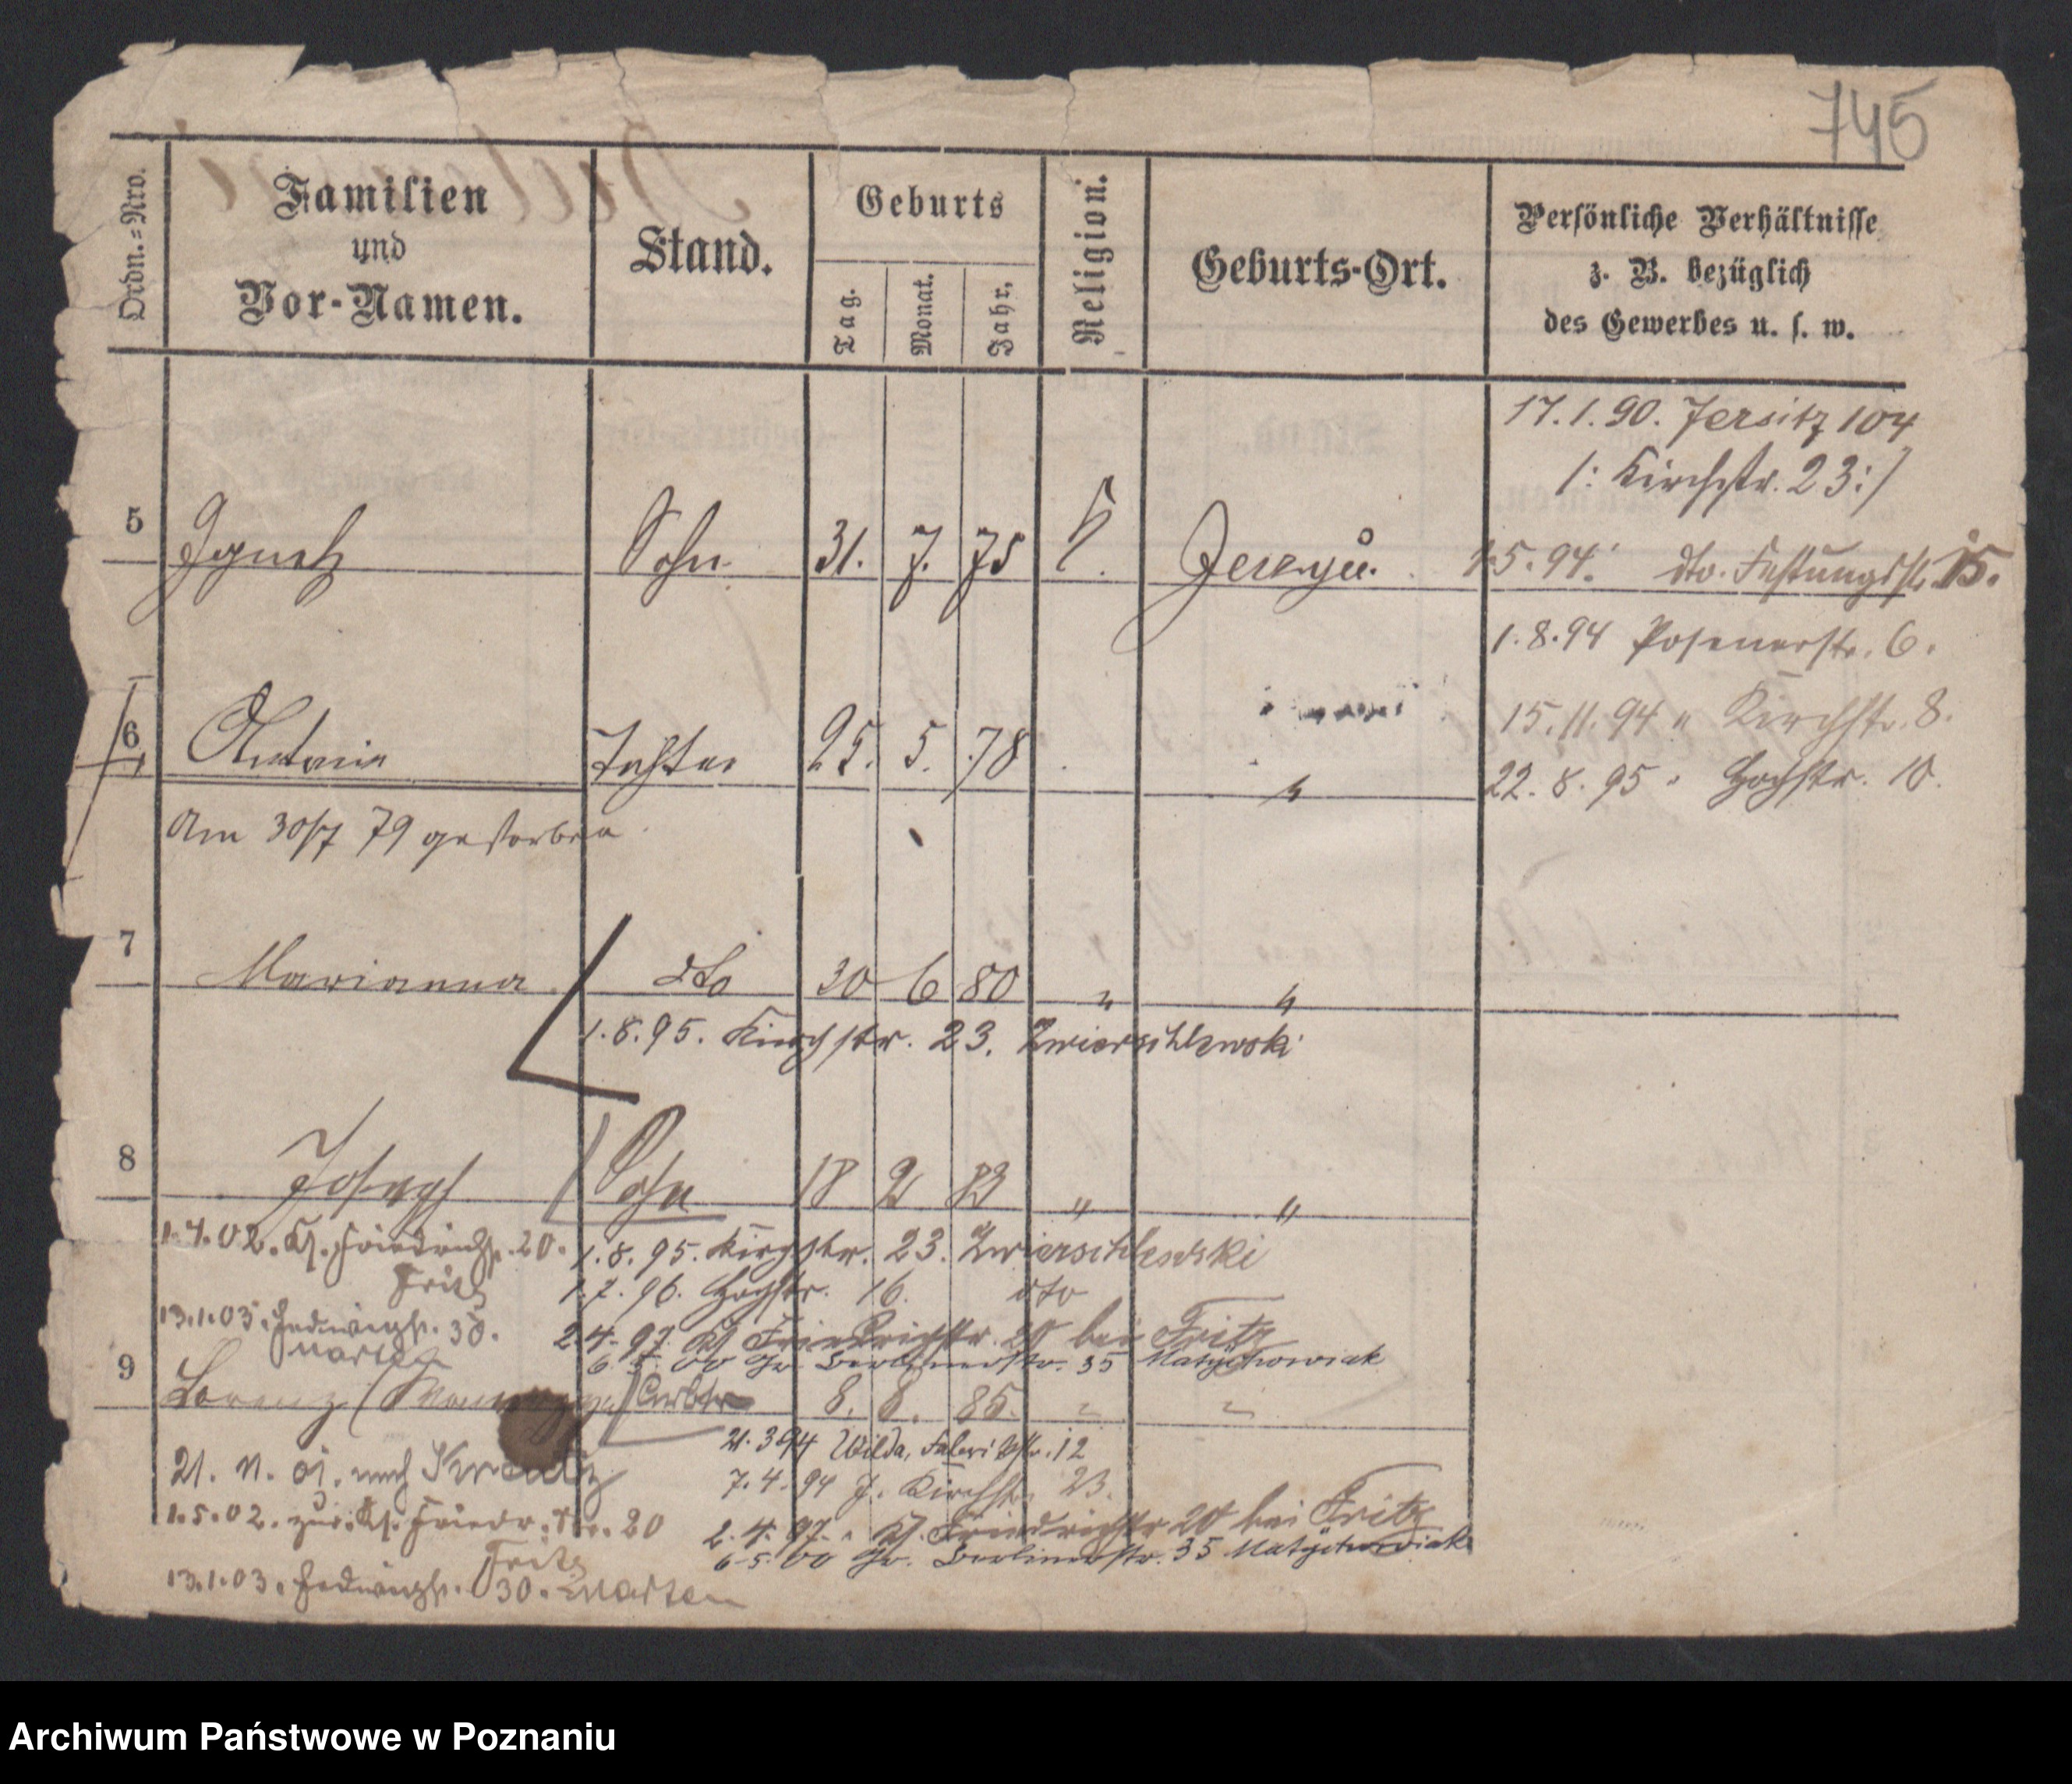 745
Ordn.-Nro.
Familien
und
Vor-Namen.
Stand.
Geburts
Tag.
Monat.
Jahr.
Religion.
Geburts-Ort.
Persönliche Verhältnisse
z. B. bezüglich
des Gewerbes u. s. w.
17.1.90. Jersitz 104
/: Kirchstr. 23:/
5 Ignatz Sohn 31. 7. 75
1.5.94. dto. Festungsstr. 15.
1.8.94 Posenerstr. 6.
6 Antonia Tochter 25. 5. 78 "
15.11.94 " Kirchstr. 8.
22.8.95 " Hochstr. 10.
Am 30/7 79 gestorben
7 Marianna dto 30 6 80 " "
1.8.95. Kirchstr. 23. Zwierschlewski
8 Joseph Sohn 18 2 83 " "
1.4.02. Kl. Friedrichstr. 20.
Fritz
1.8.95. Kirchstr. 23. Zwierschlewski
1.7.96. Hochstr. 16. dto
13.1.03. Hedwigstr. 30.
Marten
2.4.97. Kl Friedrichstr. 20 bei Fritz
6. 5. 00 Gr. Berlinerstr. 35 Matychowiak
9 Lorenz 8. 8. 85. " "
21.3.94 Wilda, Fabrikstr. 12
21. 11. 01. nach
7.4.94 J. Kirchstr. 23.
1.5.02. zur. Kl. Friedr. Str. 20
Fritz
2.4.97. " Kl. Friedrichstr 20 bei Fritz
6.5.00 Gr. Berlinerstr. 35 Matychowiak
13.1.03. Hedwigstr. 30. Marten
Archiwum Państwowe w Poznaniu